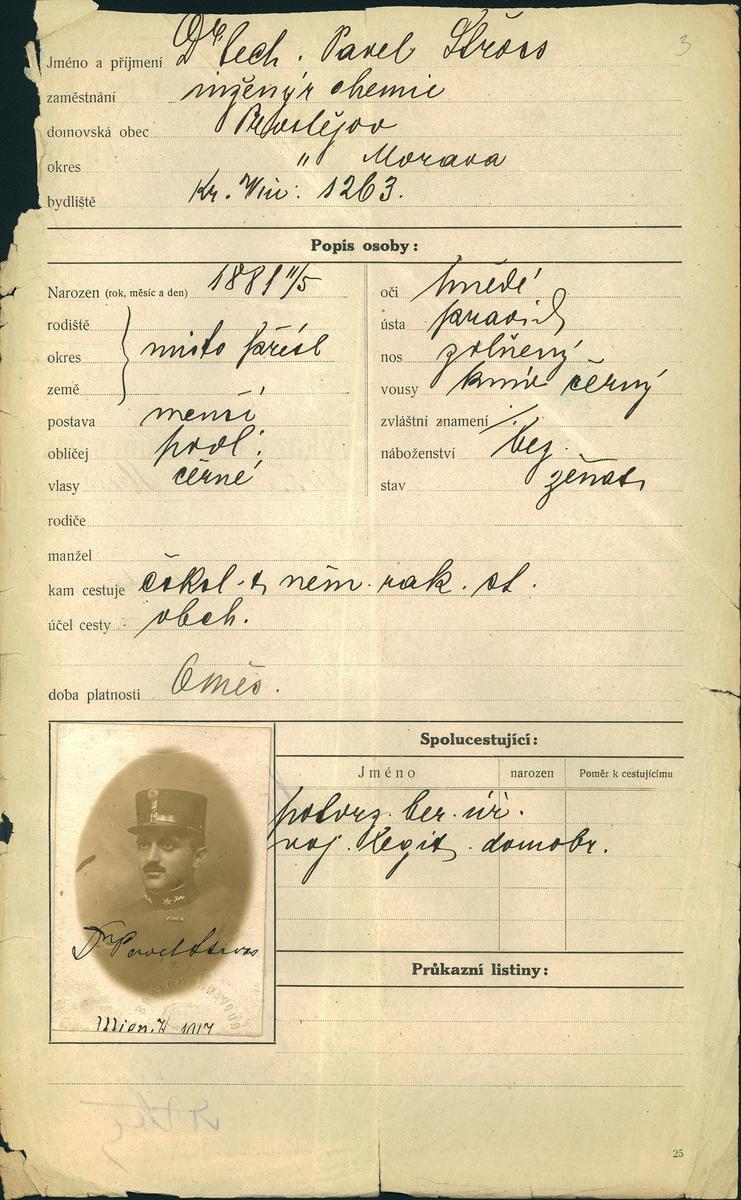 3
Jméno a příjmení Dr tech. Pavel Ströss
zaměstnání inženýr chemie
domovská obec Prostějov
okres " Morava
bydliště Kr. Vin: 1263.
Popis osoby:
Narozen (rok, měsíc a den) 1881 11/5
rodiště
okres místo přísl
země
postava menší
obličej podl.
vlasy černé
oči hnědé
ústa pravid
nos
vousy knír černý
zvláštní znamení /
náboženství bez
stav ženat
rodiče
manžel
kam cestuje čskol. něm. rak. st.
účel cesty obch.
doba platnosti 6 měs.
Spolucestující:
Jméno narozen Poměr k cestujícímu
potvrz. ber. úř.
voj. legit. domobr.
Průkazní listiny:
Dr Pavel Ströss
Wien, 1917
25